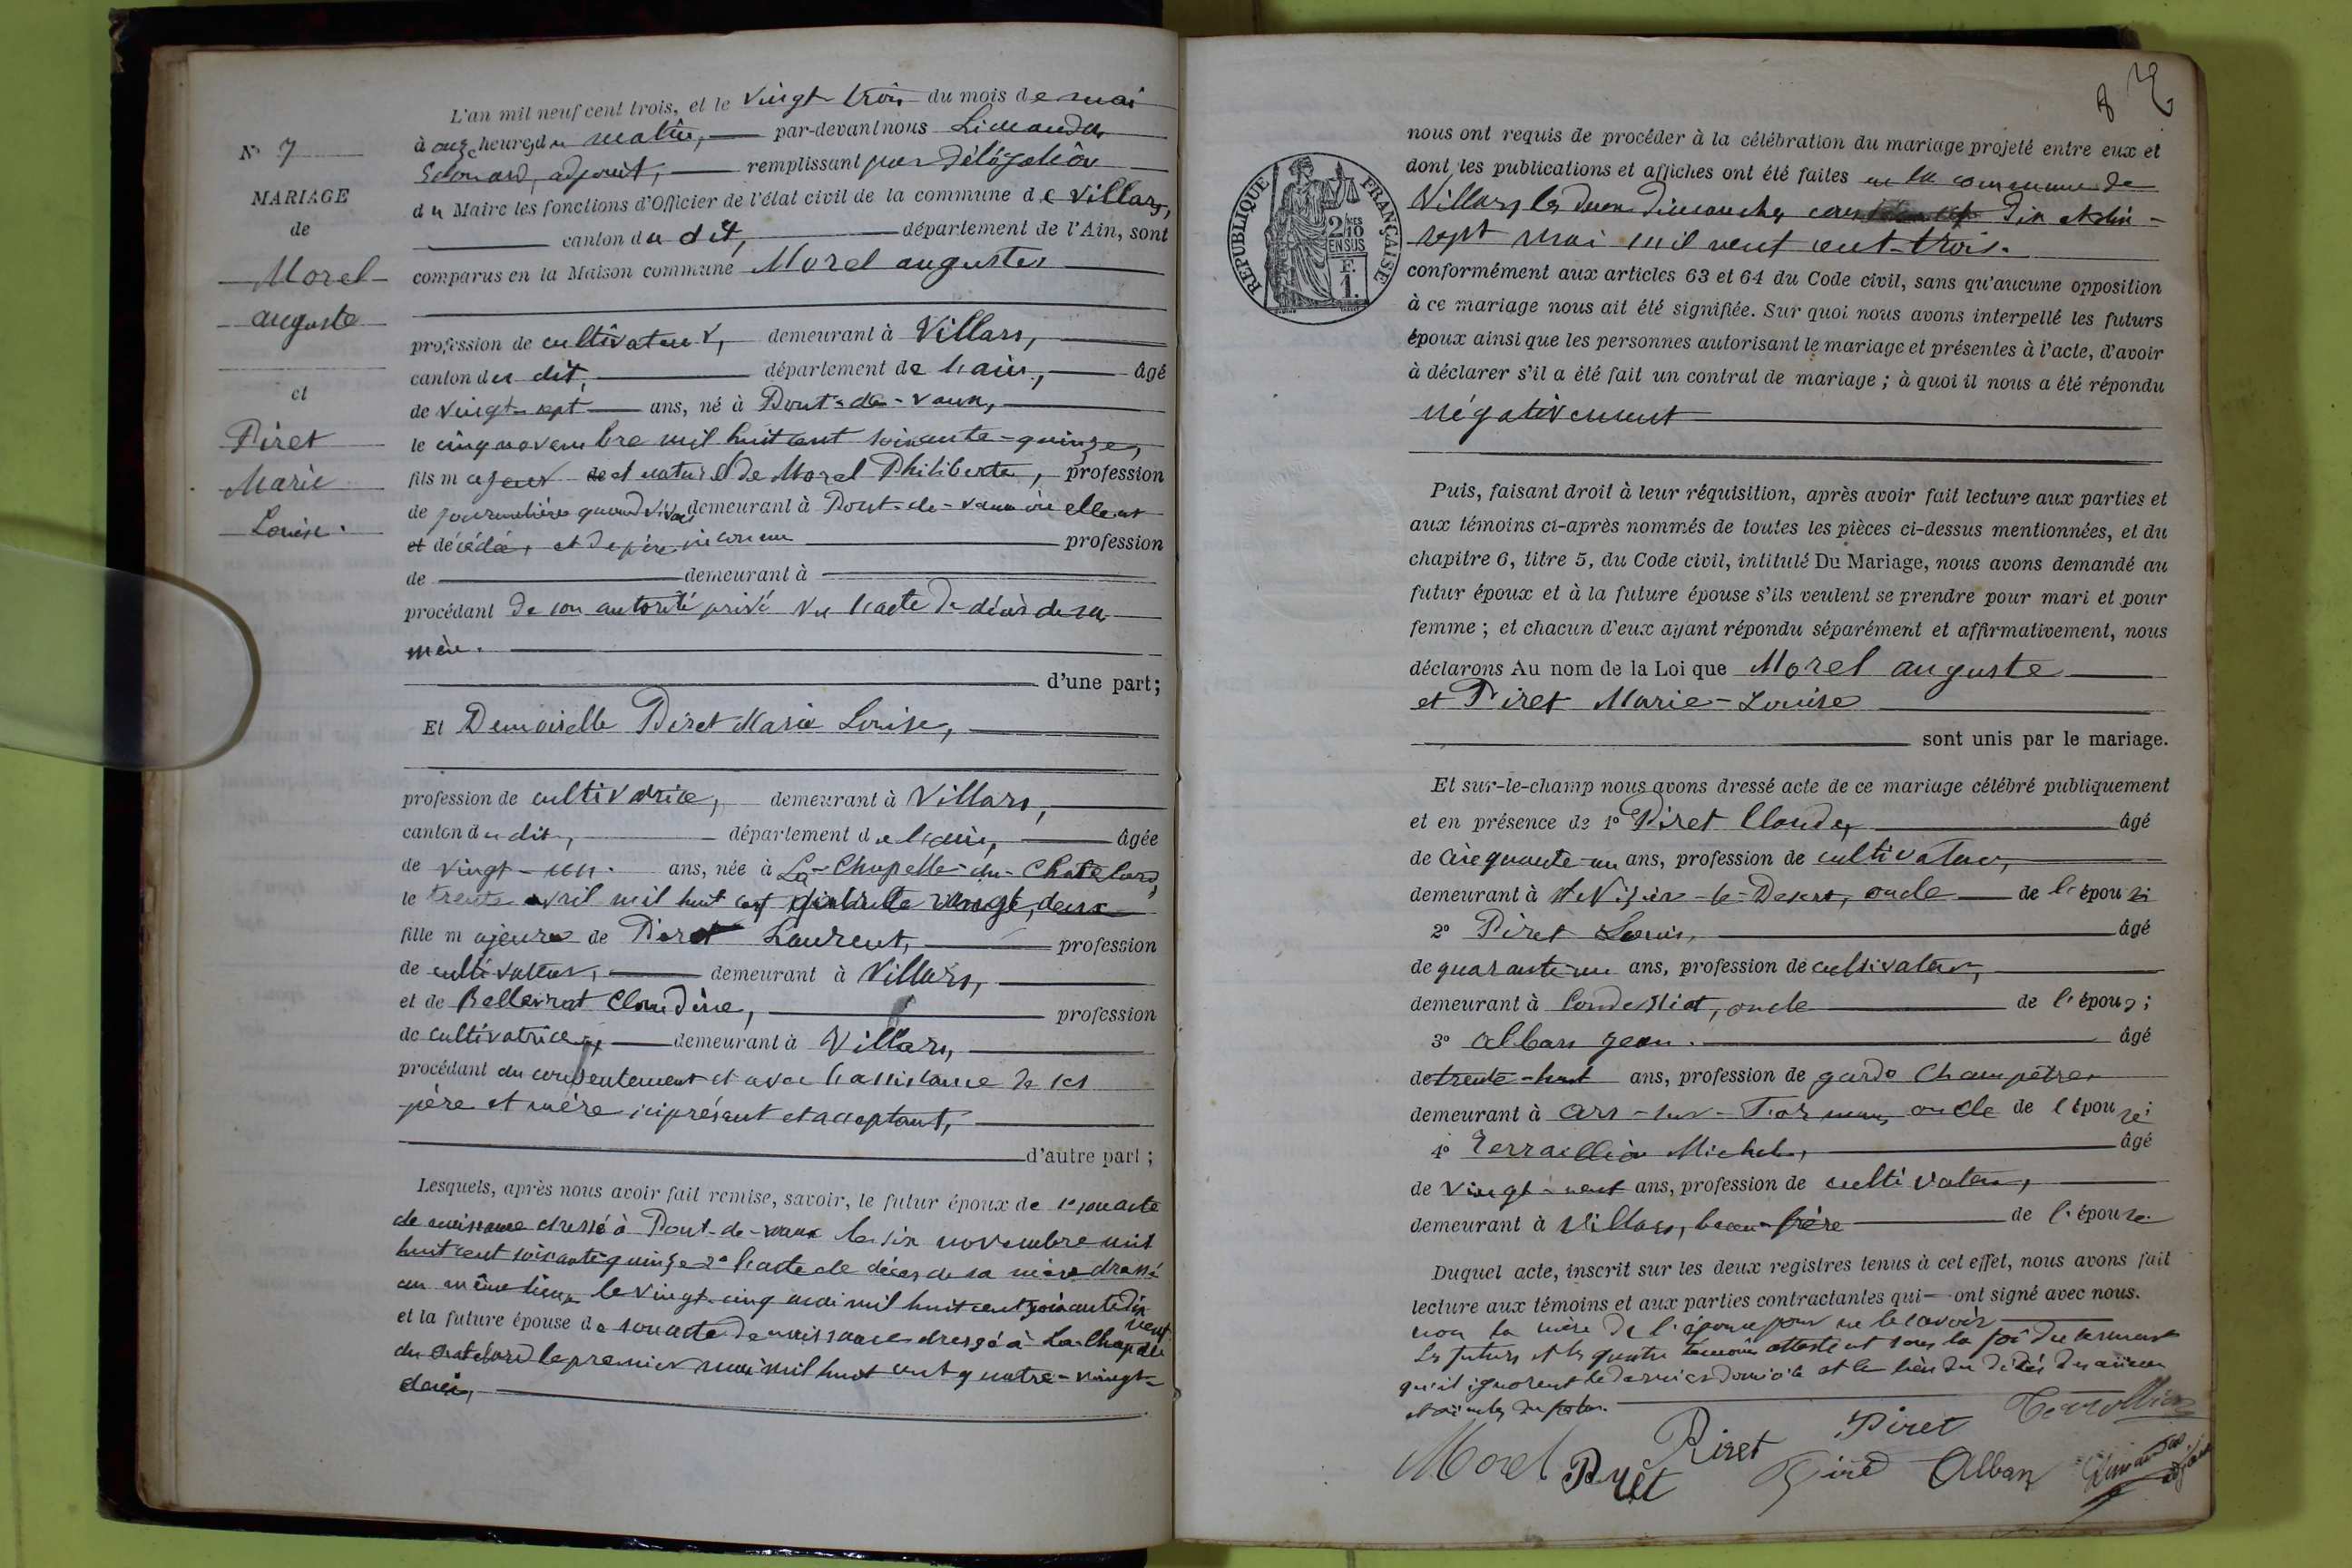 N° 7
MARIAGE
de
Morel
auguste
et
Piret
Marie
Louise.
L'an mil neuf cent trois, et le vingt-trois du mois de mai
à onze heures du matin, par-devant nous Limandas
Edouard, adjoint, remplissant par délégation
du Maire les fonctions d'Officier de l'état civil de la commune de Villars,
canton du dit, département de l'Ain, sont
comparus en la Maison commune Morel auguste
profession de cultivateur, demeurant à Villars,
canton du dit, département de l'ain, âgé
de vingt-sept ans, né à Pont-de-vaux,
le cinq novembre mil huit cent soixante-quinze,
fils majeur et naturel de Morel Philiberte, profession
de journalière quand vivait demeurant à Pont-de-vaux où elle est
et décédée, et de père inconnu profession
de demeurant à
procédant de son autorité privé vu l'acte de décès de sa
mère.
d'une part;
Et Demoiselle Piret Marie Louise,
profession de cultivatrice, demeurant à Villars,
canton du dit, département de l'ain, âgée
de vingt-un ans, née à La-Chapelle-du-Chatelard,
le trente avril mil huit cent quatre vingt, deux
fille majeure de Piret Laurent, profession
de cultivateur, demeurant à Villars,
et de Bellerrat Claudine, profession
de cultivatrice, demeurant à Villars,
procédant du consentement et avec l'assistance de ses
père et mère ici présent et acceptant,
d'autre part;
Lesquels, après nous avoir fait remise, savoir, le futur époux de 1° son acte
de naissance dressé à Pont-de-vaux le six novembre mil
huit cent soixante quinze 2° l'acte de décès de sa mère dressé
au même lieu, le vingt-cinq mai mil huit cent soixante dix
neuf
et la future épouse de son acte de naissance dressé à La Chapelle
du Chatelard le premier mai mil huit cent quatre-vingt-
deux,
8
REPUBLIQUE FRANÇAISE
2/10
EN SUS
F.
1.
nous ont requis de procéder à la célébration du mariage projeté entre eux et
dont les publications et affiches ont été faites en la commune de
Villars les deux dimanches dix et dix-
sept mai mil neuf cent-trois.
conformément aux articles 63 et 64 du Code civil, sans qu'aucune opposition
à ce mariage nous ait été signifiée. Sur quoi nous avons interpellé les futurs
époux ainsi que les personnes autorisant le mariage et présentes à l'acte, d'avoir
à déclarer s'il a été fait un contrat de mariage; à quoi il nous a été répondu
négativement
Puis, faisant droit à leur réquisition, après avoir fait lecture aux parties et
aux témoins ci-après nommés de toutes les pièces ci-dessus mentionnées, et du
chapitre 6, titre 5, du Code civil, intitulé Du Mariage, nous avons demandé au
futur époux et à la future épouse s'ils veulent se prendre pour mari et pour
femme; et chacun d'eux ayant répondu séparément et affirmativement, nous
déclarons Au nom de la Loi que Morel auguste
et Piret Marie-Louise
sont unis par le mariage.
Et sur-le-champ nous avons dressé acte de ce mariage célébré publiquement
et en présence de 1° Piret Claude, âgé
de cinquante-un ans, profession de cultivateur,
demeurant à St Nizier-le-Desert, oncle de l'épouse
2° Piret Louis, âgé
de quarante-un ans, profession de cultivateur,
demeurant à Condessiat, oncle de l'épouse;
3° Alban Jean. âgé
de trente-huit ans, profession de garde Champêtre
demeurant à Ars-sur-Formans, oncle de l'épouse;
4° Terraillion Michel, âgé
de vingt-neuf ans, profession de cultivateur,
demeurant à Villars, beau-frère de l'épouse
Duquel acte, inscrit sur les deux registres tenus à cet effet, nous avons fait
lecture aux témoins et aux parties contractantes qui ont signé avec nous.
non la mère de l'épouse pour ne le savoir
Les futurs et les quatre témoins attestent sous la foi du serment
qu'il ignorent le dernier domicile et le lieu du décès des aïeux
et aïeules du futur.
Morel Piret Piret Piret Terraillion
Piret Alban Limandas
adjoint